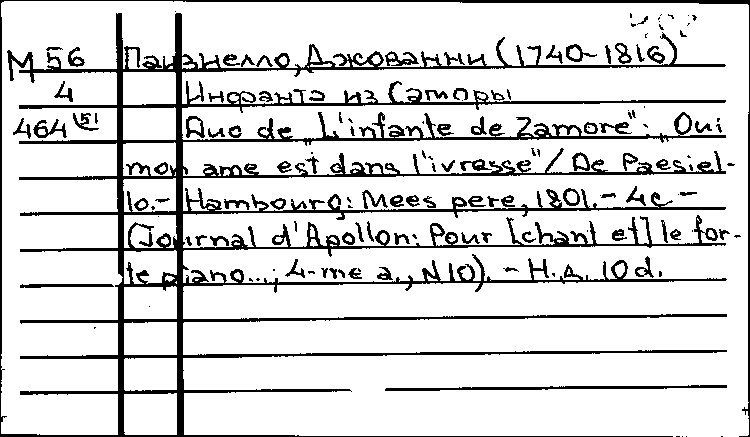 М 56 Паизиелло, Джованни (1740-1816)
4 Инфанта из Саморы
464 (51 Duo de „L'infante de Zamore": „Oui
mon ame est dans l'ivresse"/ De Paesiel-
lo.- Hambourg: Mees pere, 1801. - 4с -
(Journal d'Apollon: Pour [chant et] le for-
te piano...; 4-me a., N10). - Н.д. 10d.